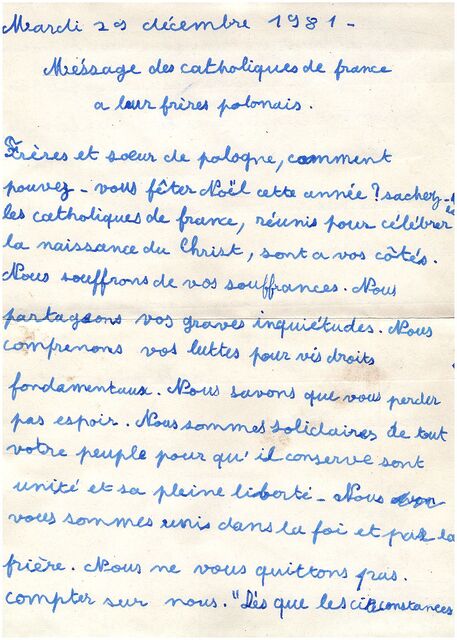 Mardi 29 décembre 1981 -
Méssage des catholiques de france
a leur frères polonais.
Frères et sœur de pologne, comment
pouvez - vous fêter Noël cette année ? sachez -
les catholiques de france, réunis pour célébrer
la naissance du Christ, sont a vos côtés.
Nous souffrons de vos souffrances. Nous
partageons vos graves inquiétudes. Nous
comprenons vos luttes pour vis droits
fondamentaux. Nous savons que vous perder
pas espoir. Nous sommes solidaires de tout
votre peuple pour qu'il conserve sont
unité et sa pleine liberté - Nous
vous sommes unis dans la foi et par la
frière. Nous ne vous quittons pas.
compter sur nous. "Dés que les circonstances